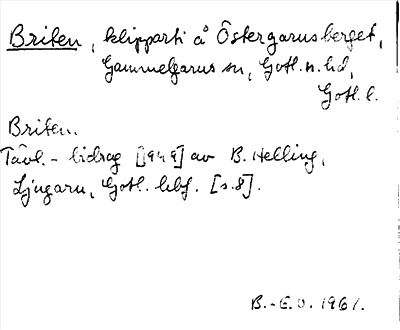 Briten, klipparti å Östergarnsberget,
Gammelgarns sn, Gotl. n. hd,
Gotl. l.
Briten.
Tävl.-bidrag [1949] av B. Helling,
Ljugarn, Gotl. hbf. [s.8].
B.-E.O. 1961.